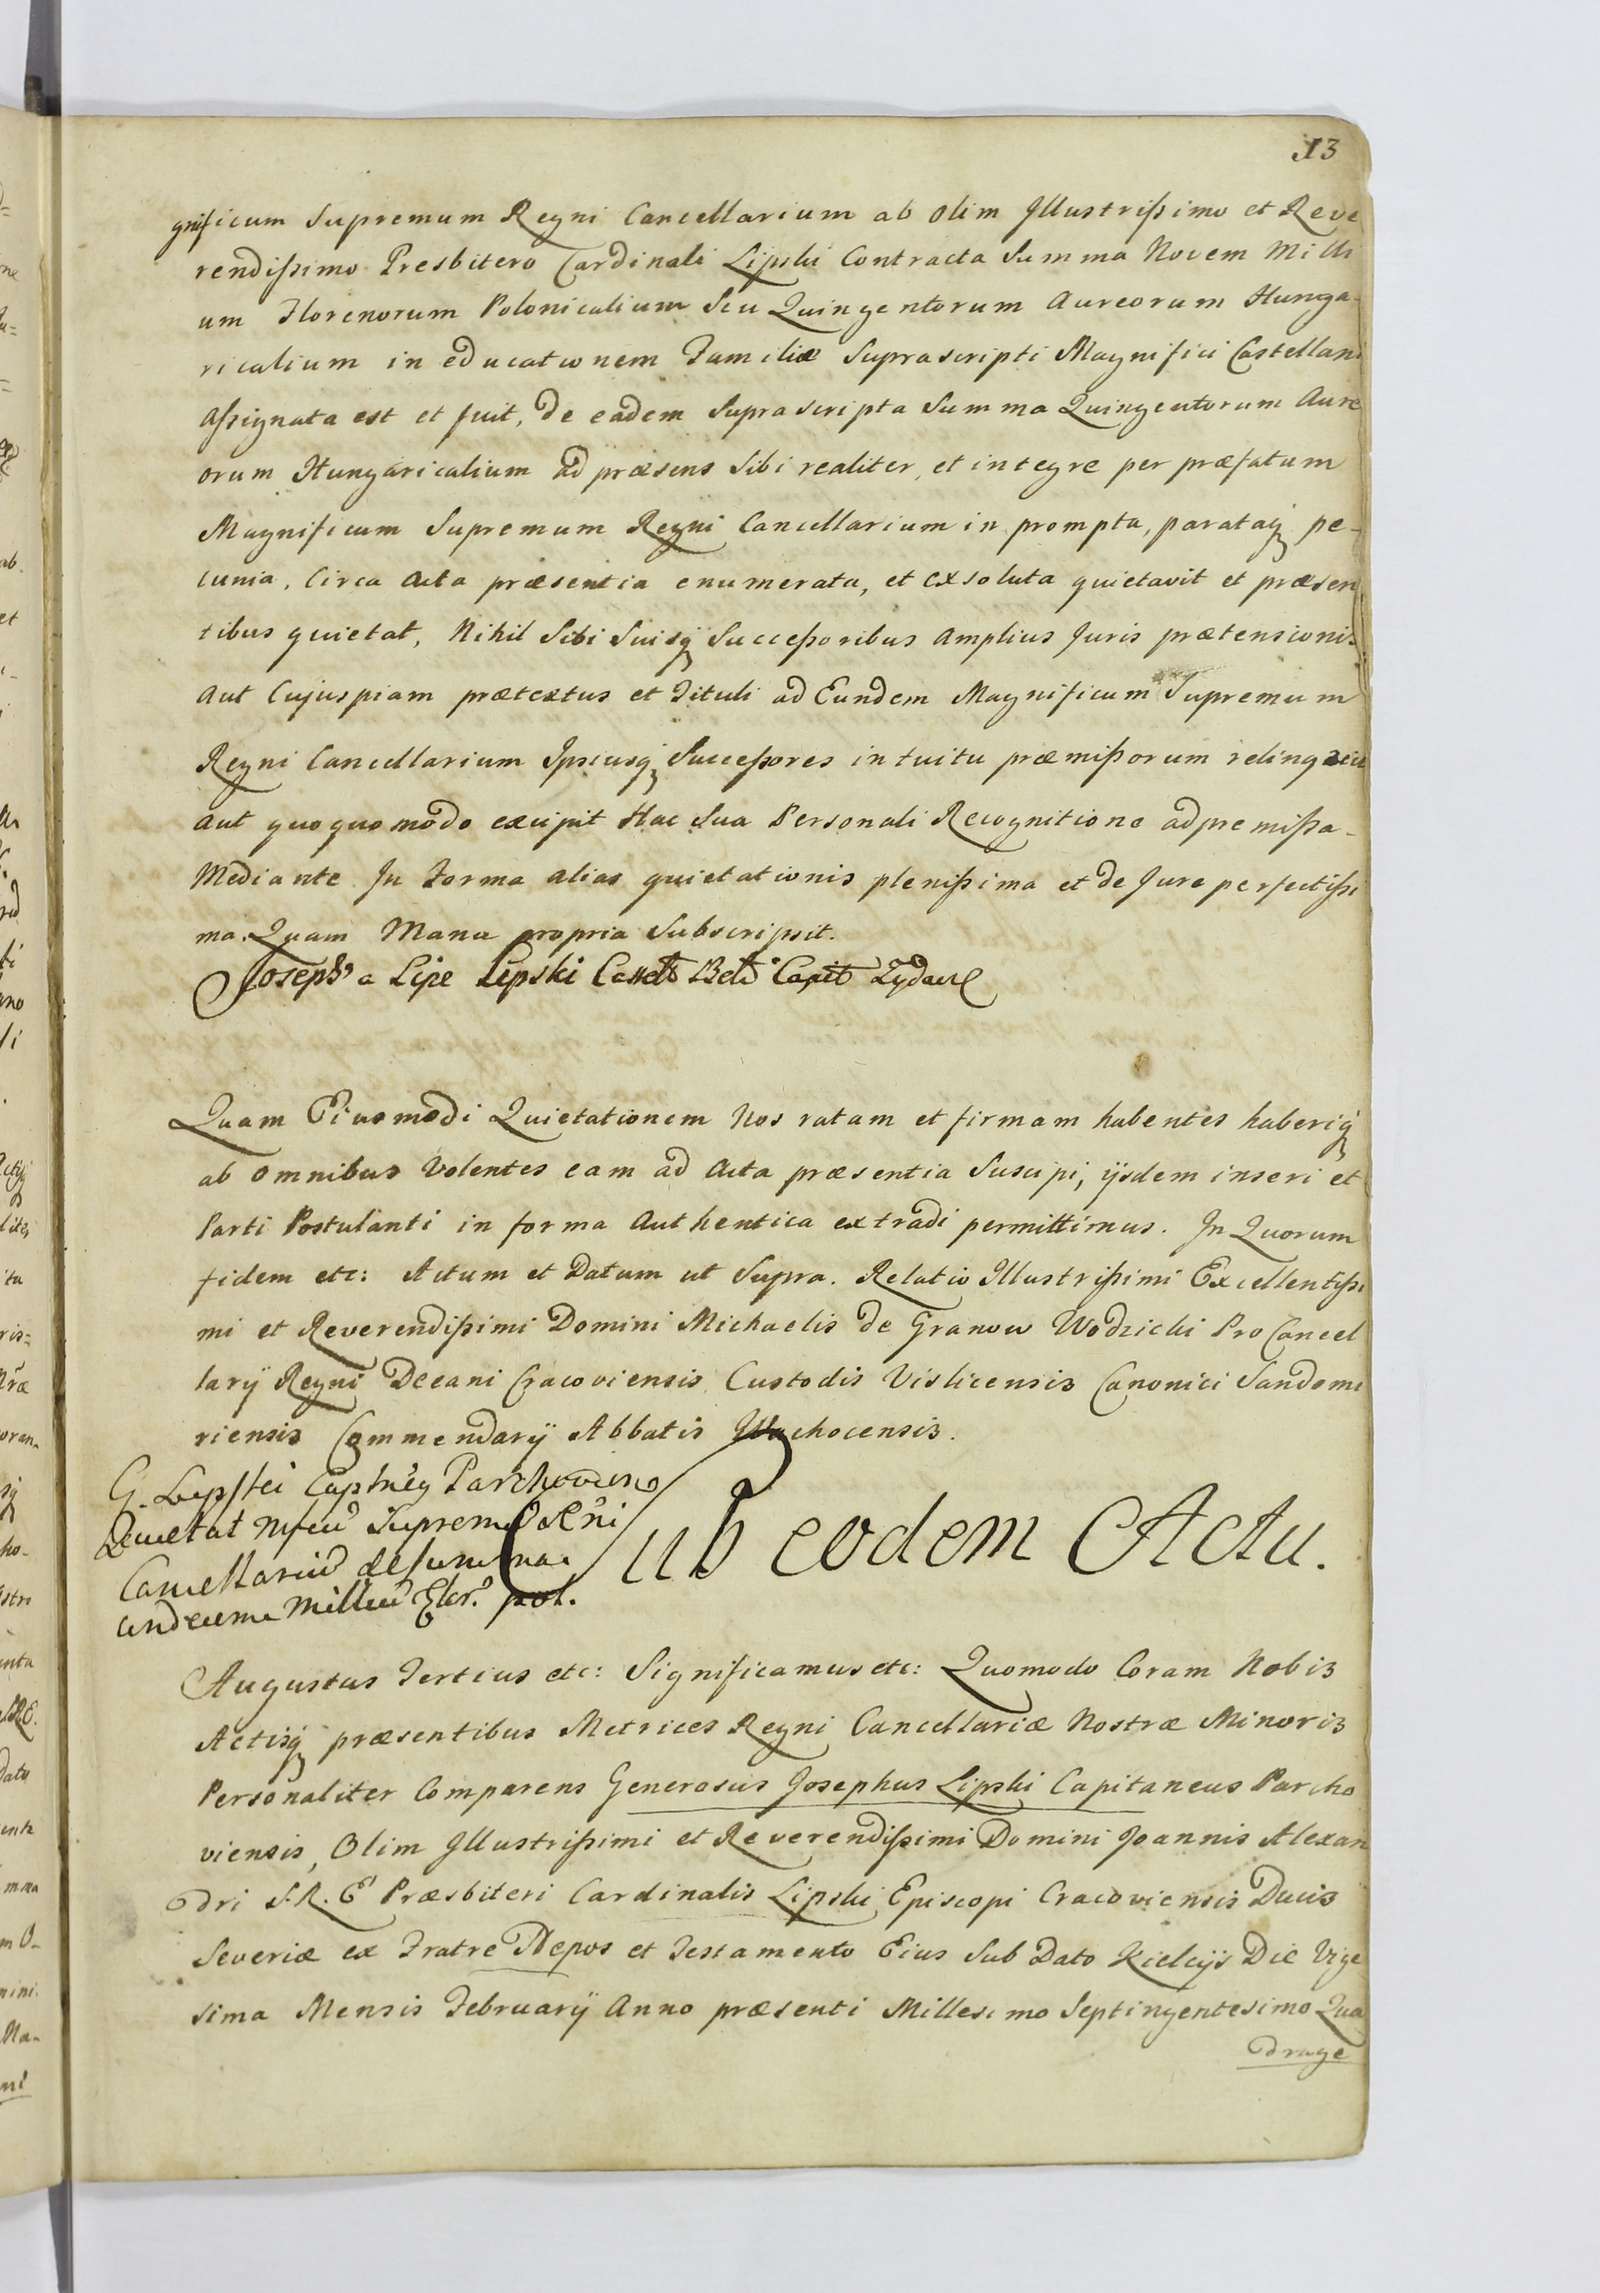 13
gnificum Supremum Regni Cancellarium ab olim Illustrißimo et Reve
rendißimo Presbitero Cardinali Lipski Contracta Summa Novem Milli
um Florenorum Polonicalium Seu Quingentorum Aureorum Hunga-
ricalium in educationem Familiæ Suprascripti Magnifici Castellani
Aßignata est et fuit, de eadem Suprascripta Summa Quingentorum Aure
orum Hungaricalium ad præsens Sibi realiter, et integre per præfatum
Magnificum Supremum Regni Cancellarium in prompta, parataq pe-
cunia, Circa Acta præsentia enumerata, et exsoluta quietavit et præsen
tibus quietat, Nihil Sibi Suisq Succeßoribus Amplius Juris prætensionis
Aut Cujuspiam prætextus et Tituli ad Eundem Magnificum Supremum
Regni Cancellarium Ipsiusq Succeßores intuitu præmißorum
aut quoquomodo excipit Hac Sua Personali Recognitione ad premißa-
Mediante In Forma alias quietationis plenißima et de Jure perfectißi
ma. Quam Manu propria Subscripsit.
Joseph a Lipe Lipski Capit
Quam Eiusmodi Quietationem Nos ratam et firmam habentes haberiq
ab omnibus Volentes eam ad Acta præsentia Suscipi, ijsdem inseri et
Parti Postulanti in forma Authentica extradi permittimus. In Quorum
fidem etc: Actum et Datum ut Supra. Relatio Illustrißimi Excellentißi
mi et Reverendißimi Domini Michaelis de Granow Wodzicki Pro Cancel
larÿ Regni Decani Cracoviensis Custodis Vislicensis Canonici Sandomi
riensis CommendarÿAbbatis Wachocensis.
G. Lipski Captneg Parchovien
Quietat Mfcu Supremu Rni
Cancellariu de summa
undecim Milliu Flor. pol.
Sub eodem Actu.
Augustus Tertius etc: Significamus etc: Quomodo Coram Nobis
Actisq præsentibus Metrices Regni Cancellariæ Nostræ Minoris
Personaliter Comparens Generosus Josephus Lipski Capitaneus Parcho
viensis, Olim Illustrißimi et Reverendißimi Domini Joannis Alexan
dri S.R.E Præsbiteri Cardinalis Lipski Episcopi Cracoviensis Ducis
Severiæ ex Fratre Nepos et Testamento Eius Sub Dato Kielcijs Die Vige
sima Mensis Februarÿ Anno præsenti Millesimo Septingentesimo Qua
drage